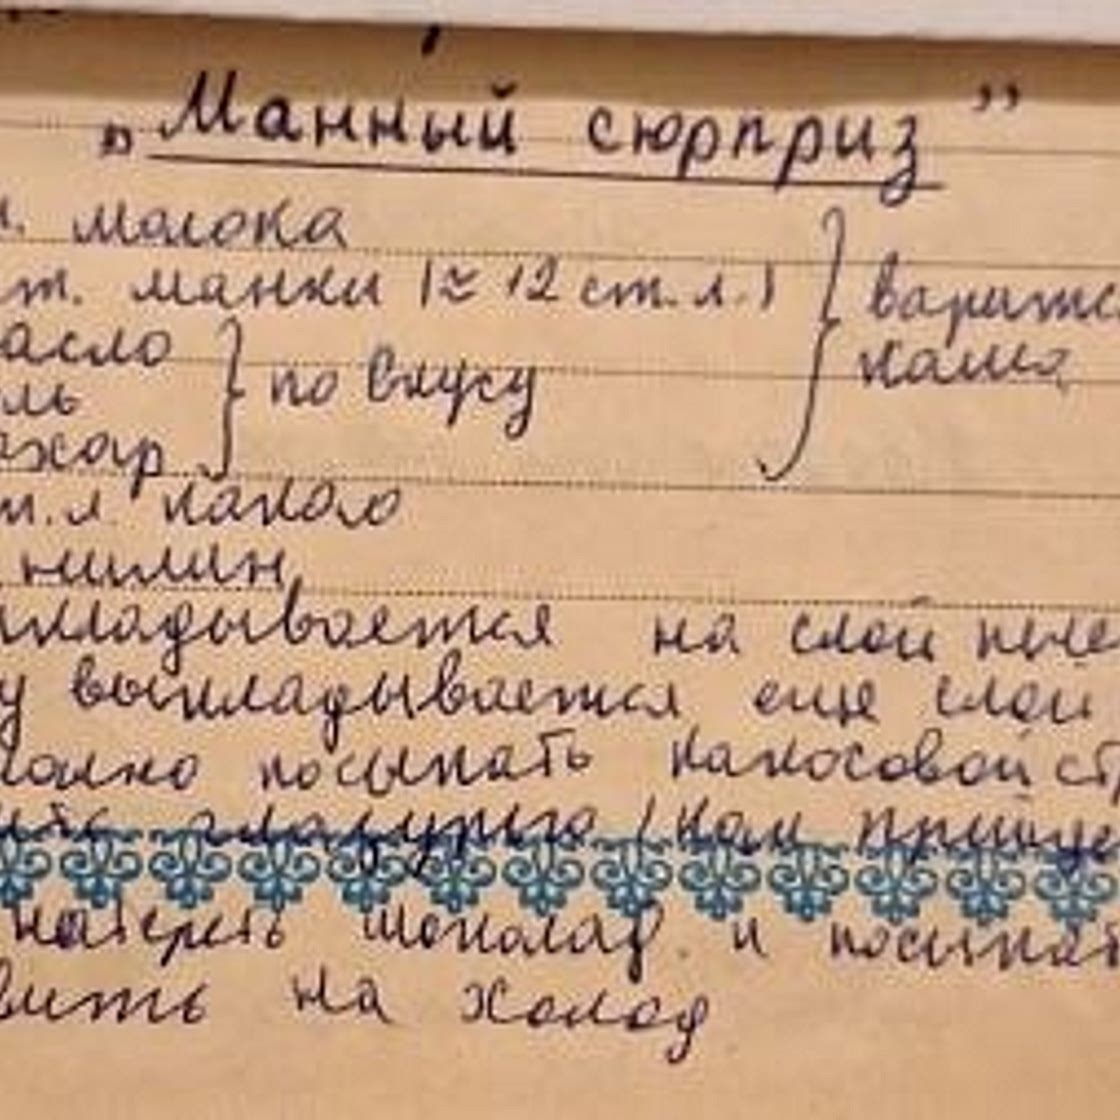 „Манный сюрприз”
л. молока
т. манки (≈ 12 ст. л.) } варитс
асло } по вкусу каша
ль
ахар
т. л. какао
нилин
кладывается на слой пече
у выкладывается еще слой
можно посыпать кокосовой ст
глазурью (как
натереть шоколад и посыпат
вить на холод